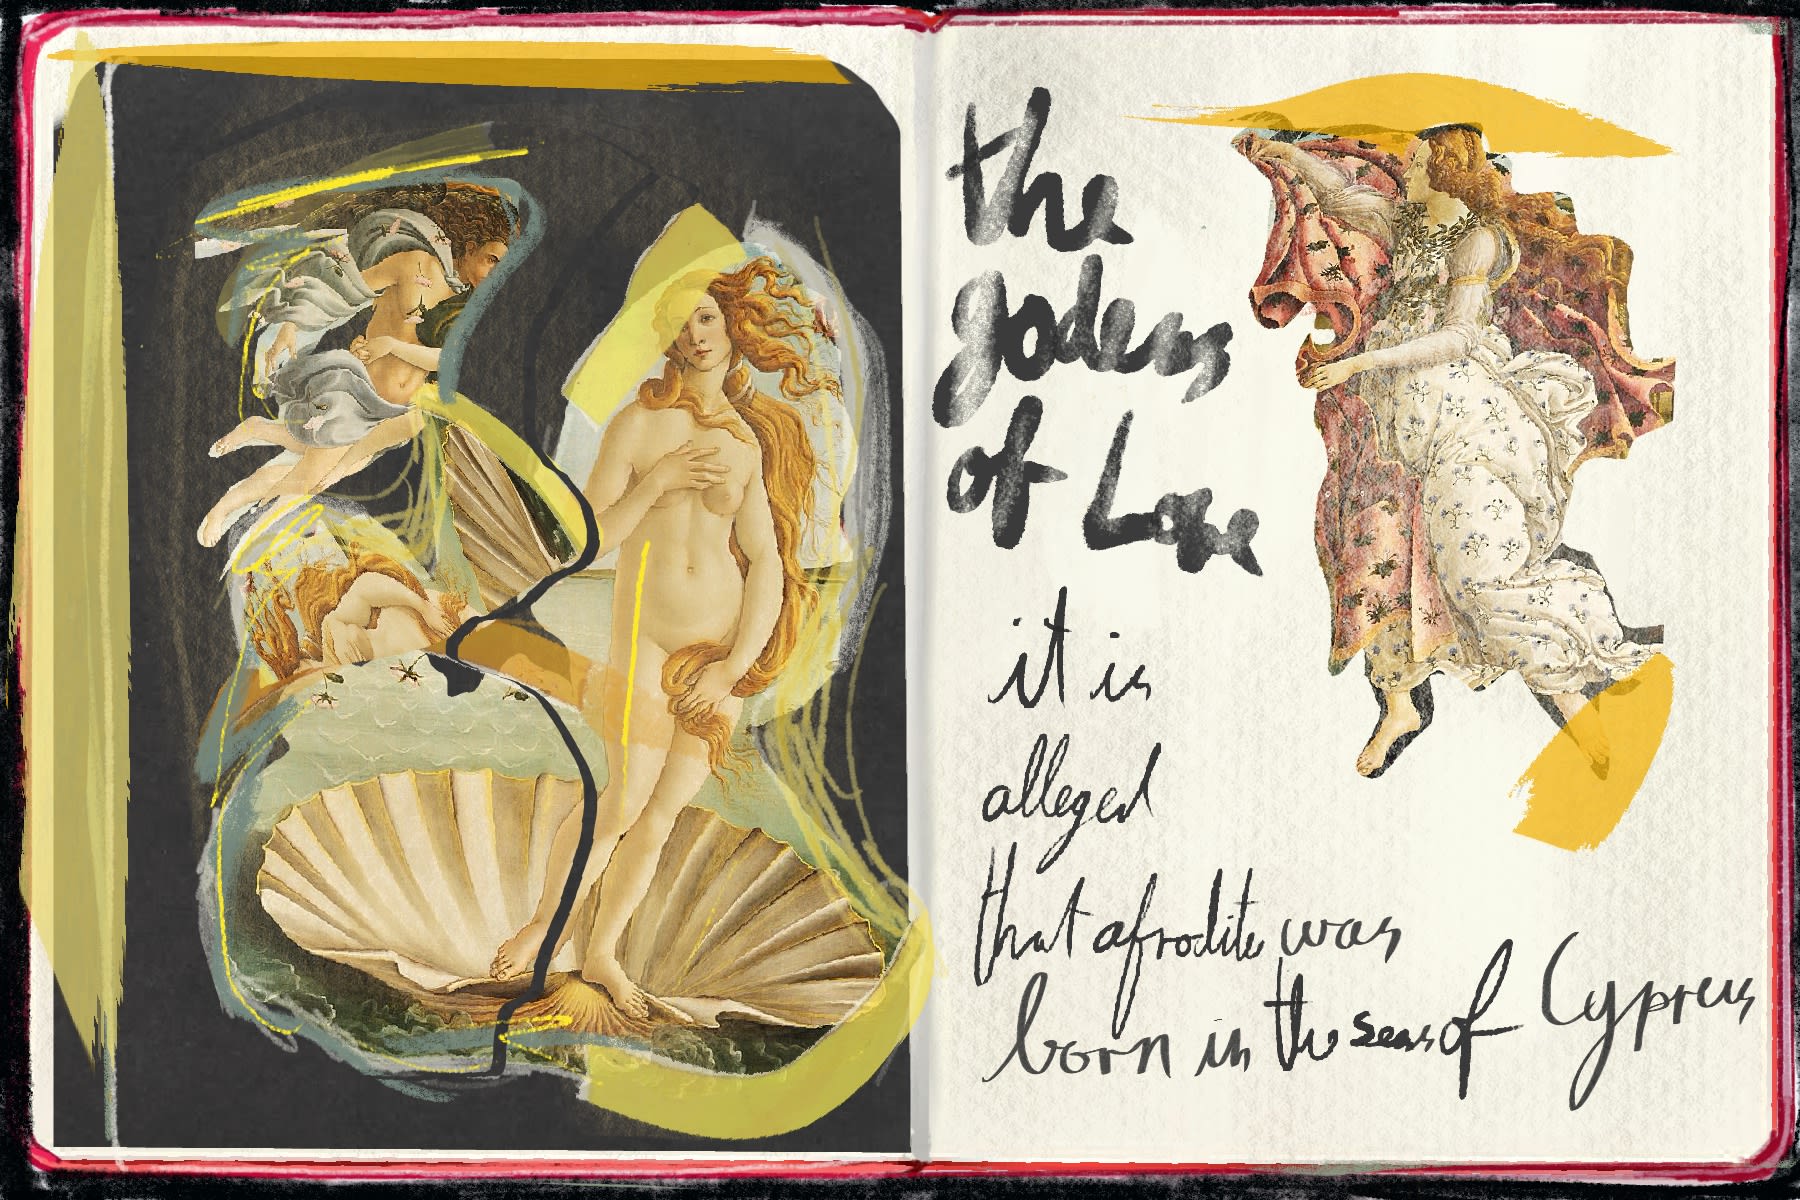 the
godess
of Love
it is
alleged
that afrodite was
born in the seas of Cyprus